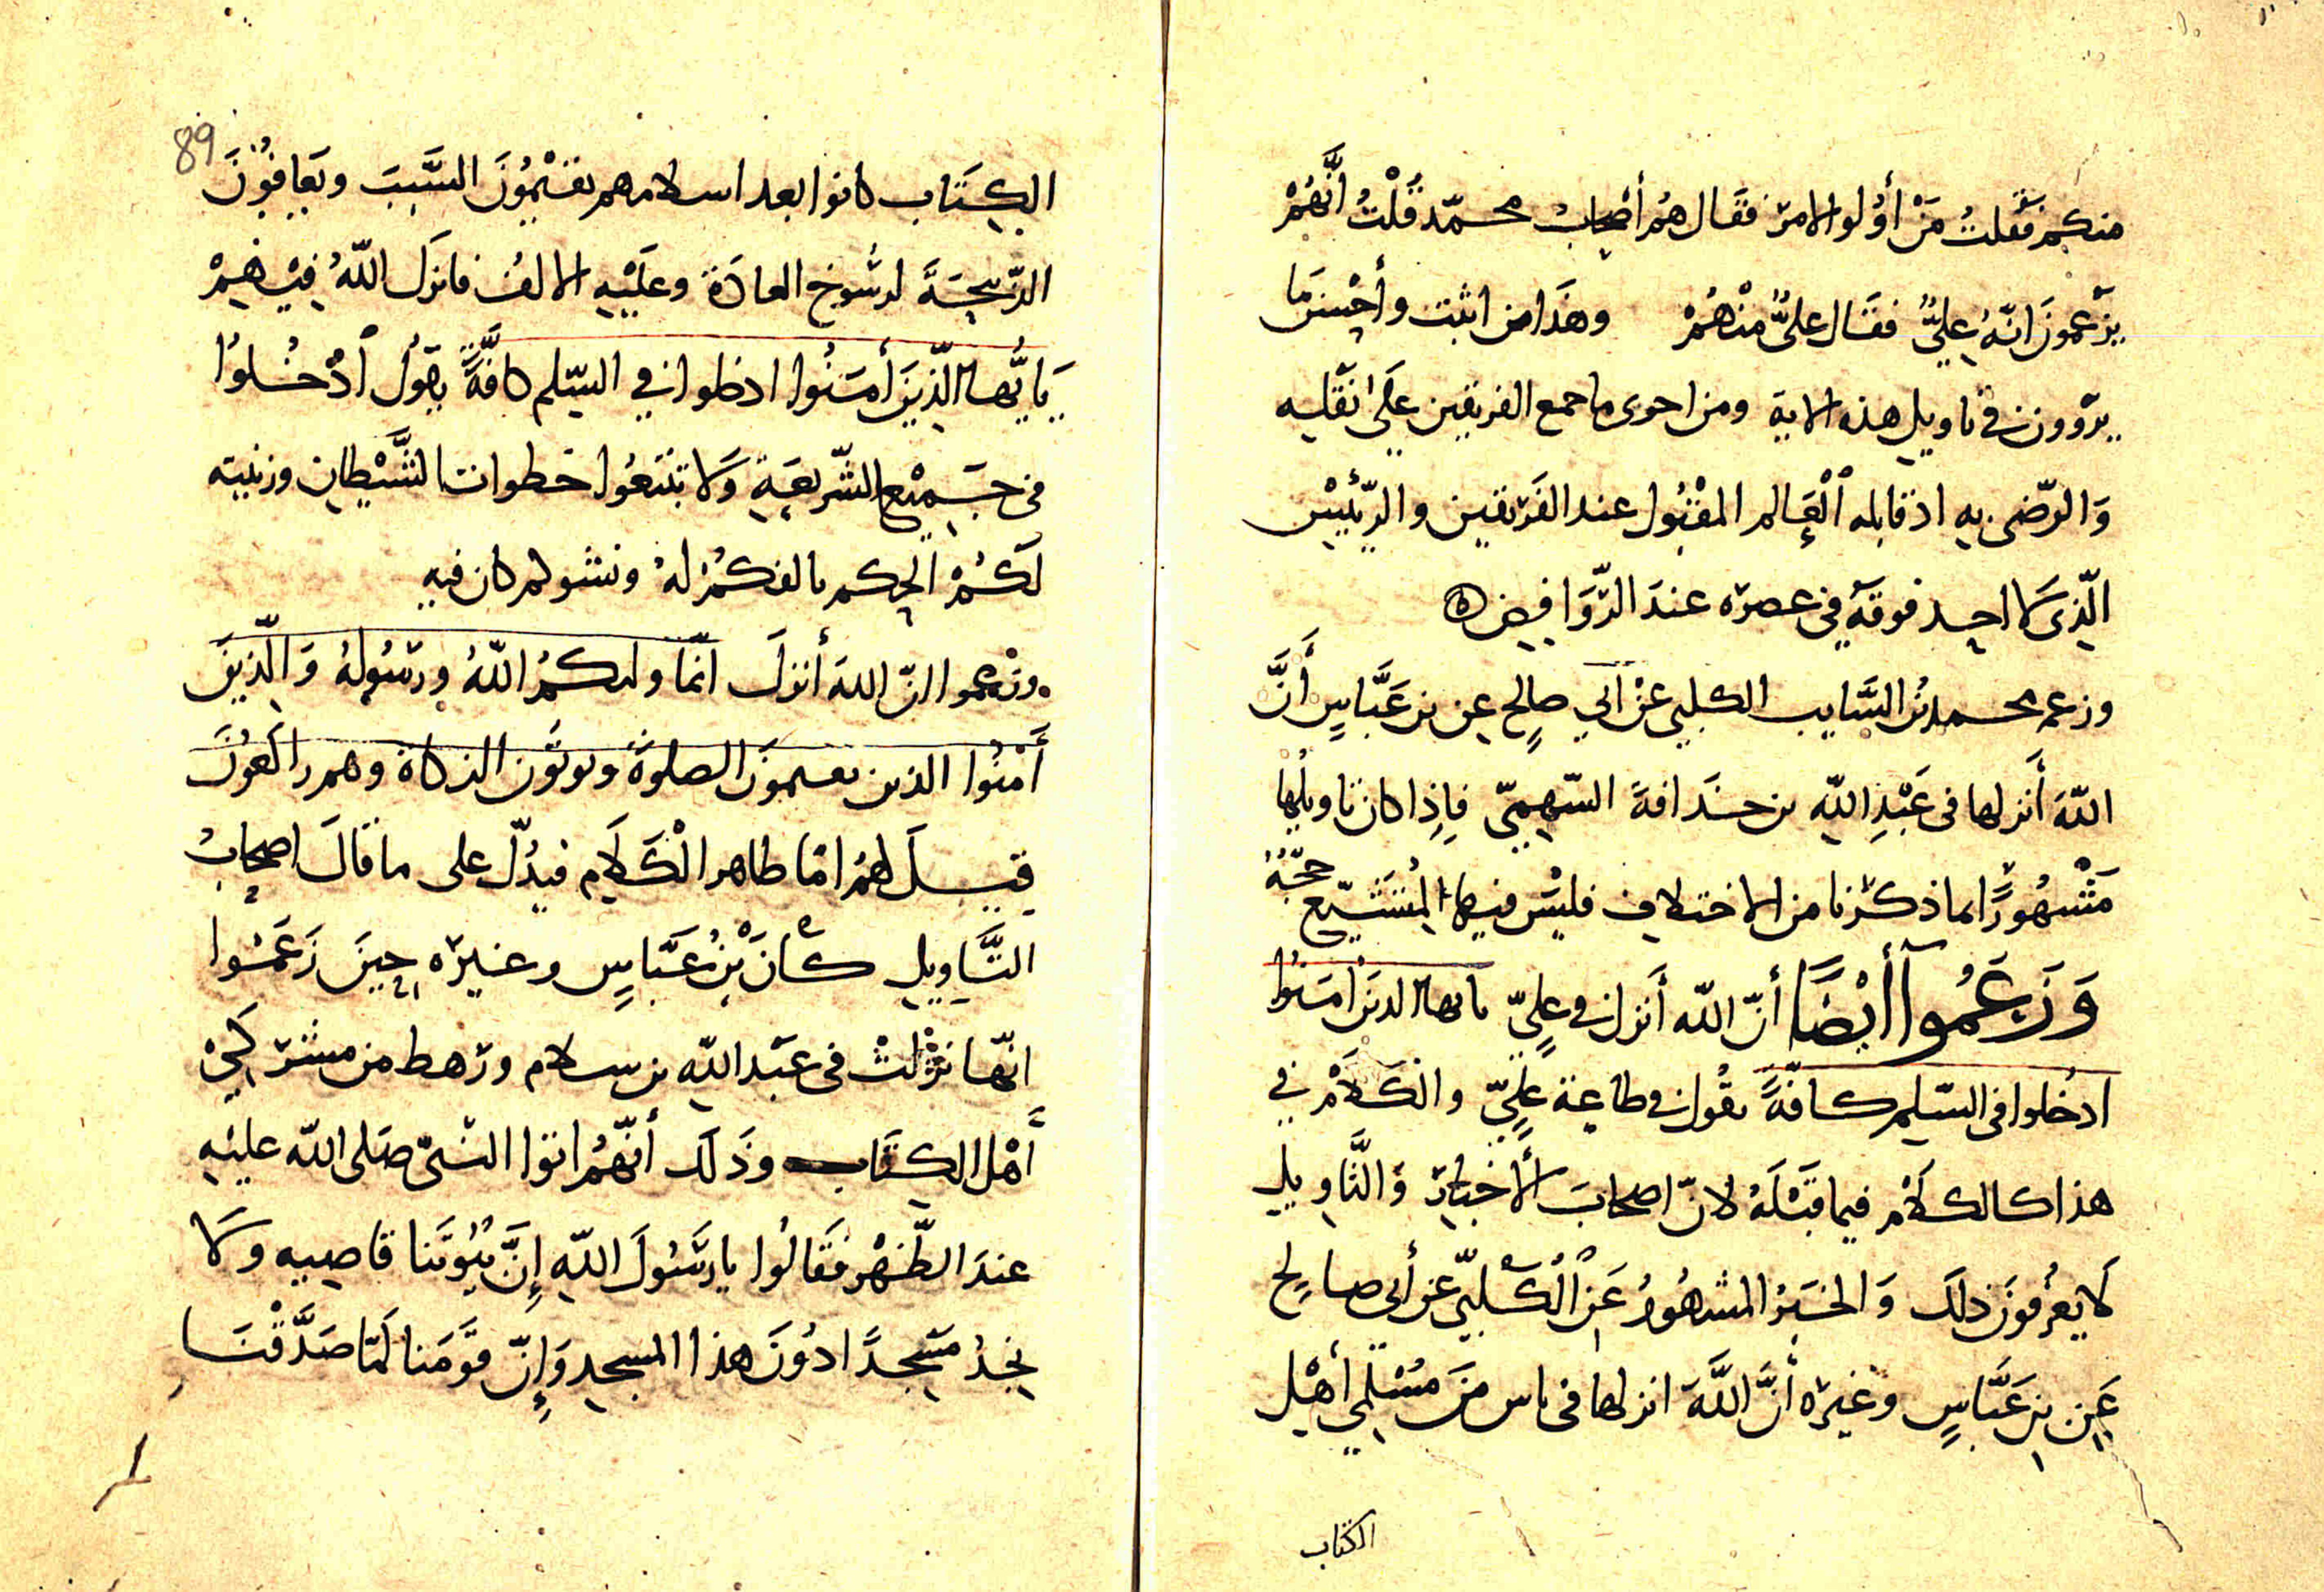 منكم فقلت من أولو الامر فقال هم أصحاب محمد قلت انهم
يزعمون انه علي فقال علي منهم وهذا من اثبت وأحسن ما
يروون في تاويل هذه الاية ومن احرى ما جمع الفريقين على نقله
والرضى به اذ قابله العالم المقبول عند الفريقين والرئيس
الذي لا احد فوقه في عصره عند الروافض ه
وزعم محمد بن السايب الكلبي عن ابي صالح عن بن عباس أن
الله أنزلها في عبد الله بن حذافة السهمي فإذا كان تاويلها
مشهورا لما ذكرنا من الاختلاف فليس فيها لمتشيع حجة
وزعموا أيضا أن الله أنزل في علي يا يها الذين أمنوا
ادخلوا في السلم كافة يقول في طاعة علي والكلام في
هذا كالكلام فيما قبله لان اصحاب الأخبار والتاويل
لا يعرفون ذلك والخبر المشهور عن الكلبي عن أبي صالح
عن بن عباس وغيره أن الله انزلها في ناس من مسلمي أهل
الكتاب
89
الكتاب كانوا بعد اسلامهم يقيمون السبت ويعافون
الذبيحة لرسوخ العادة وغلبة الالف فانزل الله فيهم
يايها الذين أمنوا ادخلوا في السلم كافة يقول ادخلوا
في جميع الشريعة ولا تتبعوا خطوات الشيطان وزنيته
لكم الحكم بالفكم له ونشوكم كان فيه
وزعموا ان الله أنزل انما وليكم الله ورسوله والذين
أمنوا الذين يقيمون الصلوة ويوتون الزكاة وهم راكعون
قيل لهم اما ظاهر الكلام فيدل على ما قال اصحاب
التاويل كأن بن عباس وغيره حين زعموا
انها نزلت في عبد الله بن سلام ورهط من مشركي
أهل الكتاب وذلك أنهم اتوا النبي صلى الله عليه
عند الظهر فقالوا يا رسول الله إن بيوتنا قاصيه ولا
نجد مسجدا دون هذا المسجد وإن قومنا لما صدقنا